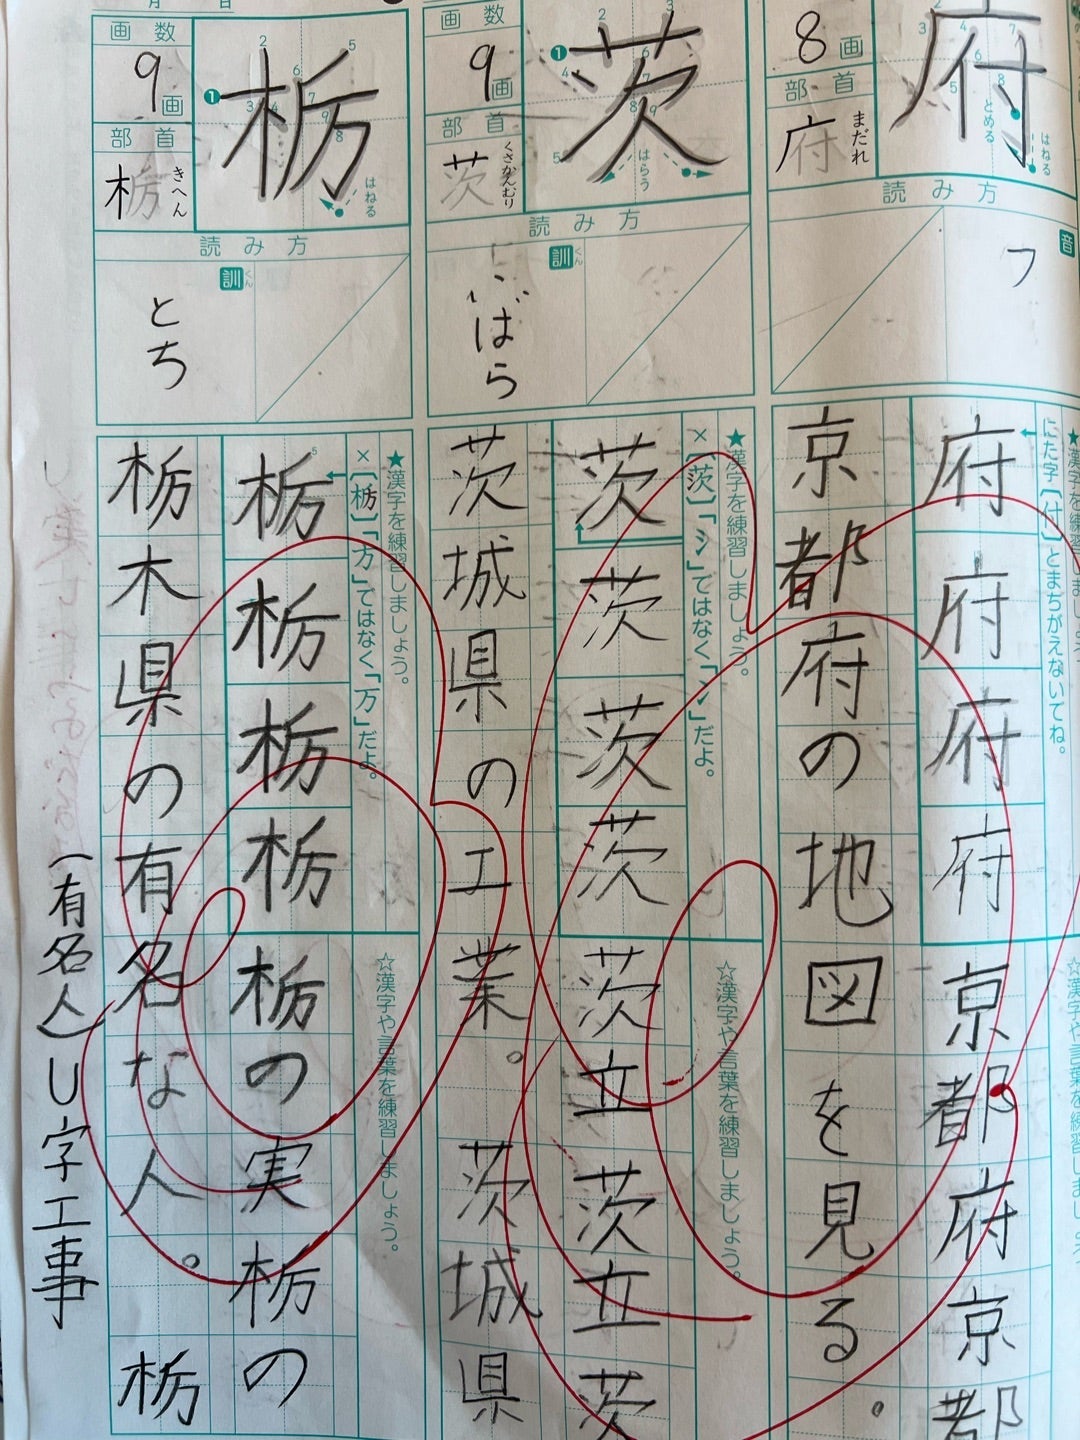 8画
部首
府
まだれ
府
とめる
はねる
読み方
音
フ
にた字〔付〕とまちがえないでね。
府府府府京都府京都
京都府の地図を見る。
画数
9画
部首
茨
くさかんむり
茨
はらう
読み方
訓
くん
いばら
★漢字を練習しましょう。
×〔茨〕「冫」ではなく「冫」だよ。
☆漢字や言葉を練習しましょう。
茨茨茨茨茨立茨立茨
茨城県の工業。茨城県
画数
9画
部首
栃
きへん
栃
はねる
読み方
訓
くん
とち
★漢字を練習しましょう。
×〔栃〕「方」ではなく「万」だよ。
☆漢字や言葉を練習しましょう。
栃栃栃栃栃の実栃の
栃木県の有名な人。栃
(有名人)U字工事